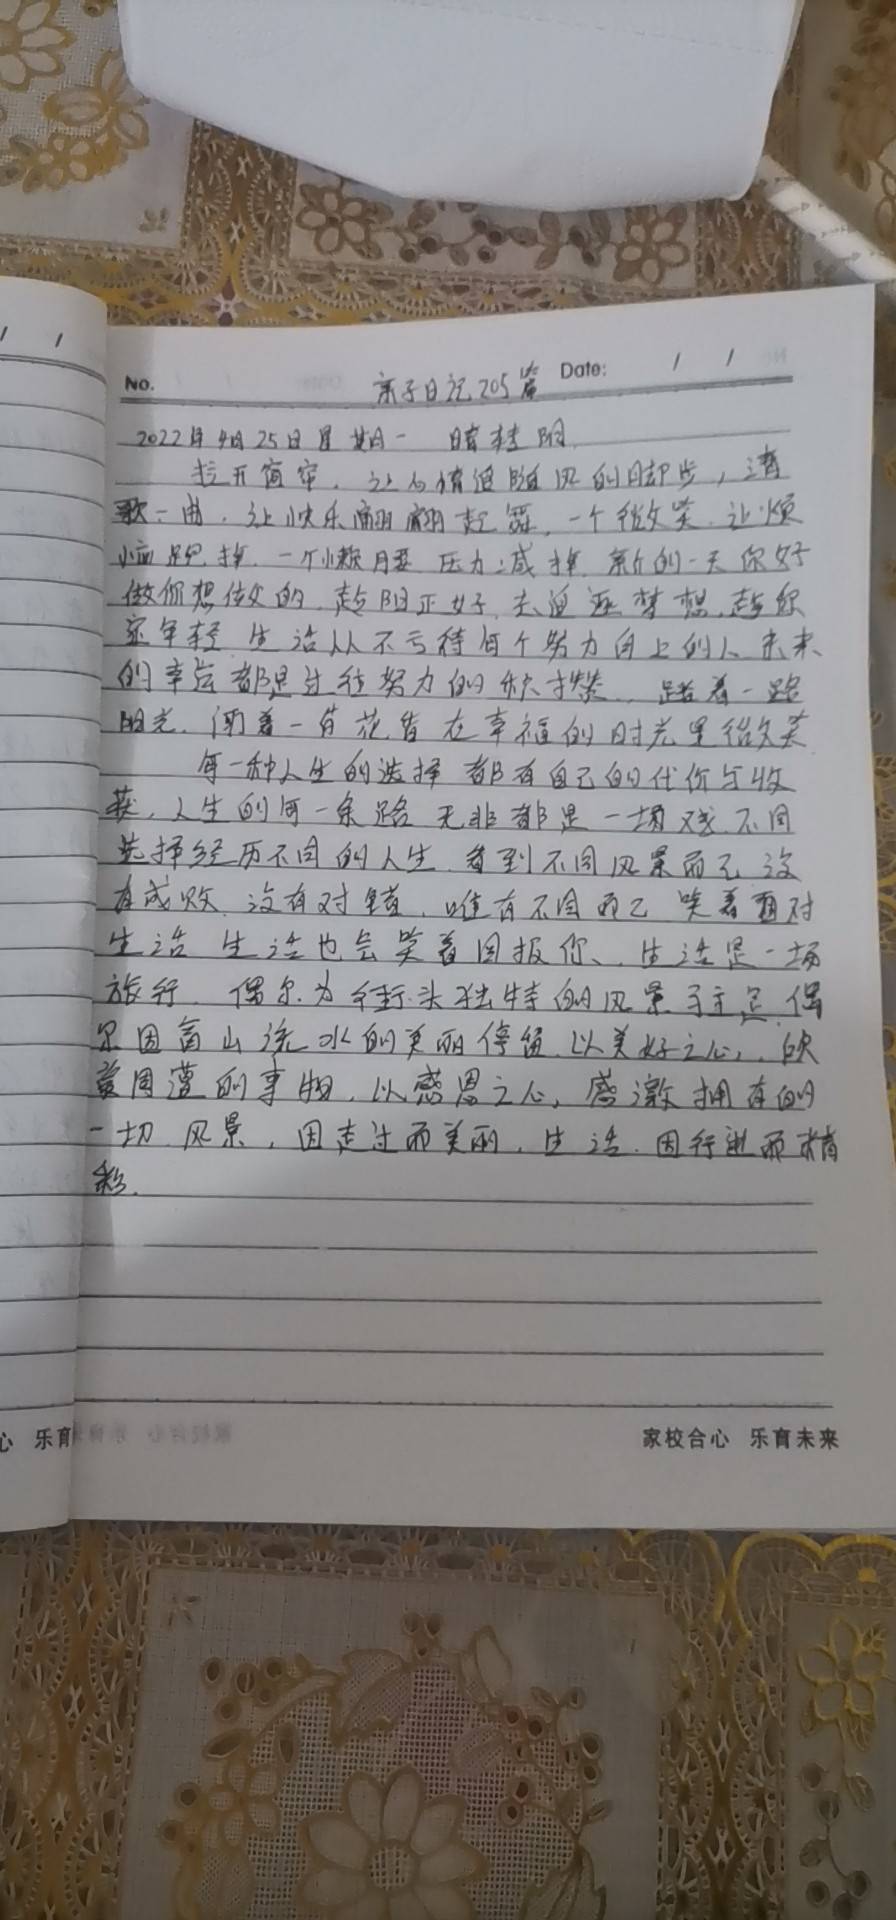 No. 亲子日记205篇 Date: / /
2022年4月25日星期一 晴转阴
拉开窗帘，让心情追随风的脚步，清
歌一曲，让快乐翩翩起舞，一个微笑，让烦
恼跑掉，一个懒腰 压力减掉，新的一天你好
做你想做的，趁阳正好，去追逐梦想，趁你
还年轻，生活从不亏待每个努力向上的人、未来
的幸运都是过往努力的积攒，踏着一路
阳光，闻着一肩花香 在幸福的时光里微笑
每一种人生的选择 都有自己的代价与收
获，人生的每一条路 无非都是一场戏，不同
选择经历不同的人生，看到不同风景而已 没
有成败，没有对错，唯有不同而已 笑着面对
生活 生活也会笑着回报你、生活是一场
旅行，偶尔为街头独特的风景驻足，偶
尔因高山流水的美丽停留，以美好之心，欣
赏周遭的事物，以感恩之心，感激拥有的
一切，风景，因走过而美丽，生活，因行进而精
彩.
家校合心 乐育未来
/ /
心 乐育